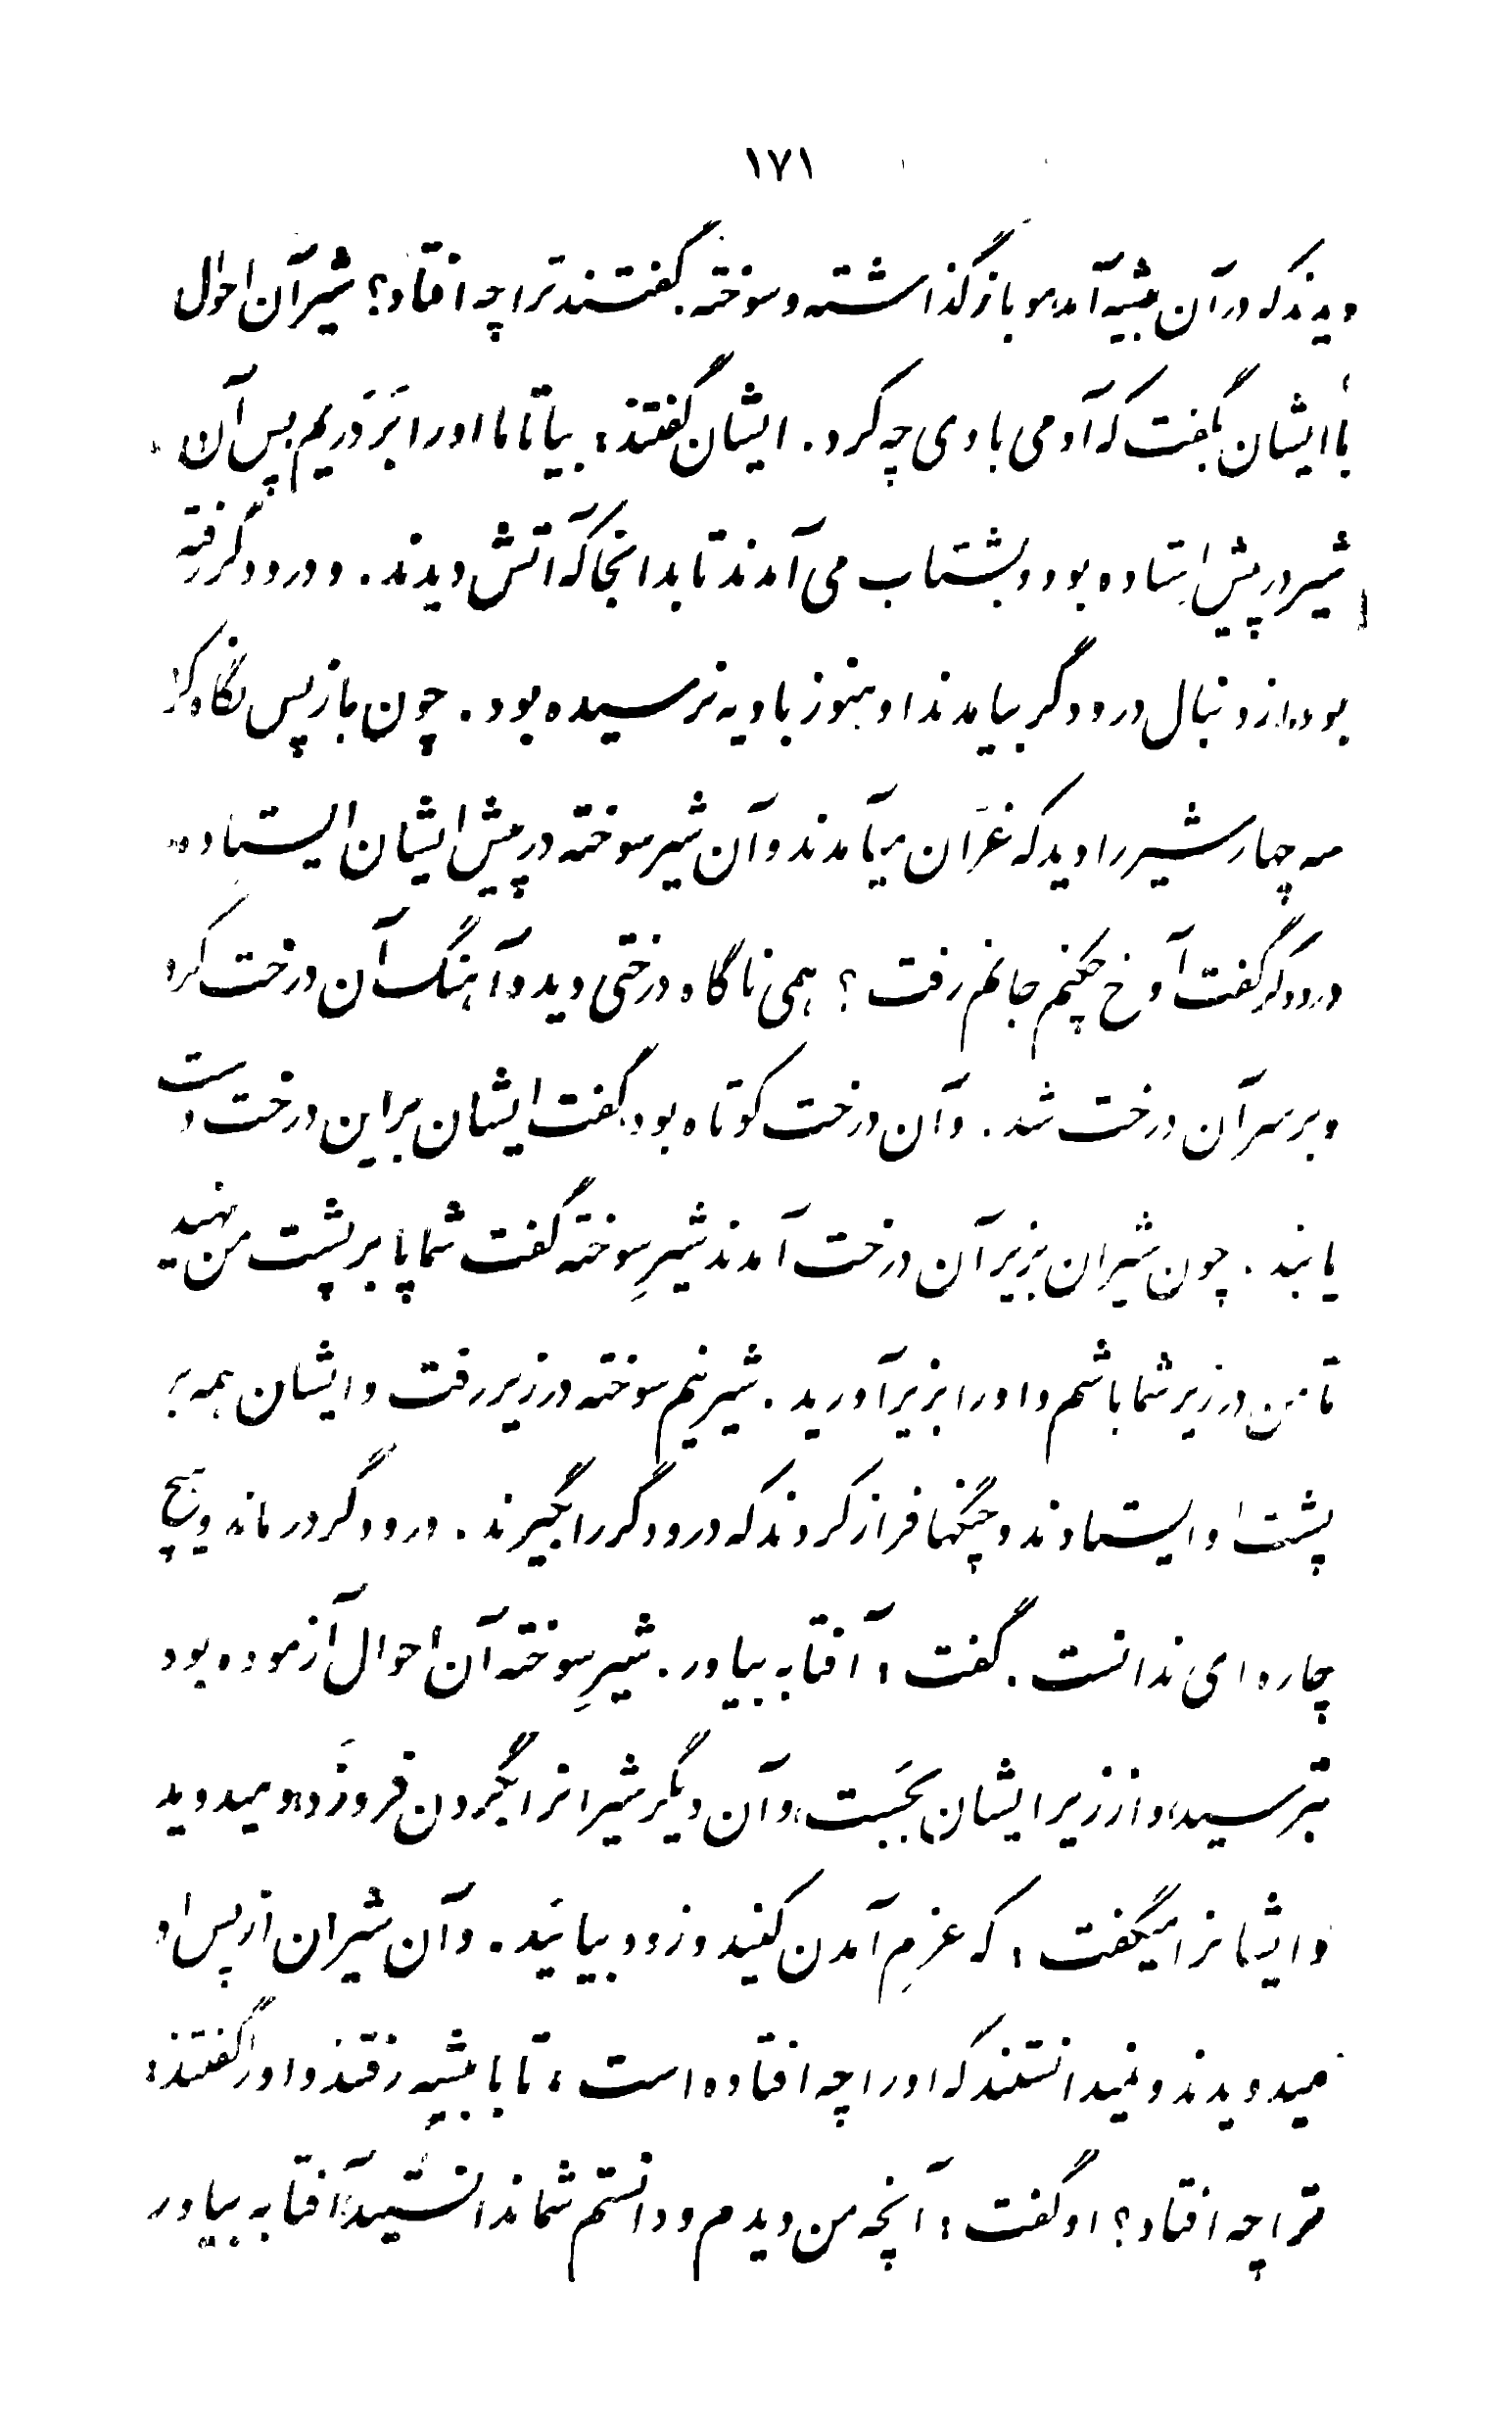 ۱۷۱
دیدند که در آن بیشه آمد مو باز گذاشته و سوخته. گفتند ترا چه افتاد؟ شیر آن احوال
با ایشان بگفت که آدمی با وی چه کرد. ایشان گفتند: بیا تا ما او را بَردَریم پس آن
شیر در پیش اِستاده بود و بشتاب می آمدند تا بدانجا که آتش دیدند. و درودگر رفته
بود، از دنبال درودگر بیامدند او هنوز بادیه نرسیده بود. چون باز پس نگاه کرد
سه چهار شیر را دید که غرّان میآمدند و آن شیر سوخته در پیش ایشان ایستاده
درودگر گفت آوخ چکنم جانم رفت؟ همی ناگاه درختی دید و آهنگ آن درخت کرد
و بر سر آن درخت شد. و آن درخت کوتاه بود گفت ایشان بر این درخت دست
یابند. چون شیران بزیر آن درخت آمدند شیرِ سوخته گفت شما پا بر پشت من نهید
تا من در زیر شما باشم و او را بزیر آورید. شیر نیم سوخته در زیر رفت و ایشان همه بر
پشت او ایستادند و چنگها فراز کردند که درودگر را بگیرند. درودگر در ماند و هیچ
چاره ای ندانست. گفت: آفتابه بیاور. شیرِ سوخته آن احوال آزموده بود
بترسید، و از زیر ایشان بجَست، و آن دیگر شیرانرا بگردن فروزَد، و میدوید
و ایشانرا میگفت: که عزمِ آمدن کنید و زود بیائید. و آن شیران از پس او
میدویدند و نمیدانستند که او را چه افتاده است، تا با بیشه رفتند و او را گفتند:
ترا چه افتاد؟ او گفت: آنچه من دیدم و دانستم شما ندانستید، آفتابه بیاور